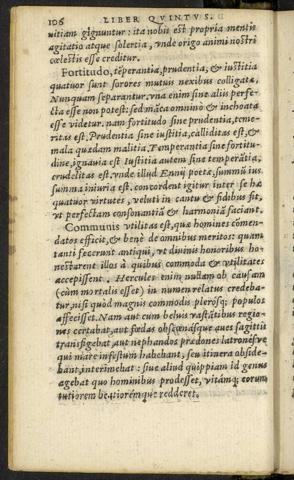 106 LIBER QVINTVS.
uitiam gignuntur: ita nobis est propria mentis
agitatio atque solertia, vnde origo animi nostri
cœlestis esse creditur.
Fortitudo, tẽperantia, prudentia, & iustitia
quatuor sunt sorores mutuis nexibus colligatæ,
Nunquam separantur. vna enim sine alijs perfe-
cta esse non potest: sed māca omnino & inchoata
esse videtur. nam fortitudo sine prudentia, teme-
ritas est. Prudentia sine iustitia, calliditas est, &
mala quædam malitia. Temperantia sine fortitu-
dine, ignauia est. Iustitia autem sine temperātia,
crudelitas est. vnde illud Ennij poetæ, summū ius,
summa iniuria est. concordent igitur inter se hæ
quatuor virtutes, veluti in cantu & fidibus fit,
vt perfectam consonantiā & harmoniā faciant.
Communis vtilitas est, quæ homines cōmen-
datos efficit, & benè de omnibus meritos: quam
tanti fecerunt antiqui, vt diuinis honoribus ho-
nestarent illos à quibus commoda & vtilitates
accepissent. Hercules enim nullam ob causam
(cùm mortalis esset) in numen relatus credeba-
tur, nisi quòd magnis commodis plerósq; populos
affecisset. Nam aut cum beluis vastātibus regio-
nes certabat, aut fœdas obscœnásque aues sagittis
transfigebat, aut nephandos prædones latronésve
qui mare infestum habebant, seu itinera obside-
bant, interimebat: siue aliud quippiam id genus
agebat quo hominibus prodesset, vitámq; eorum
tutiorem beatiorémque redderet.